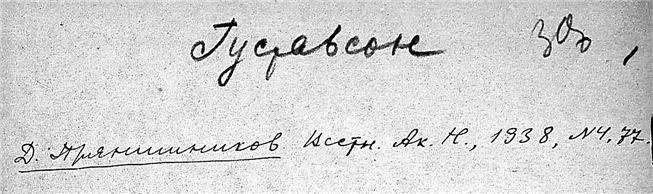 Густавсон
Д. Прянишников Вестн. Ак. Н., 1938, №4, 77.